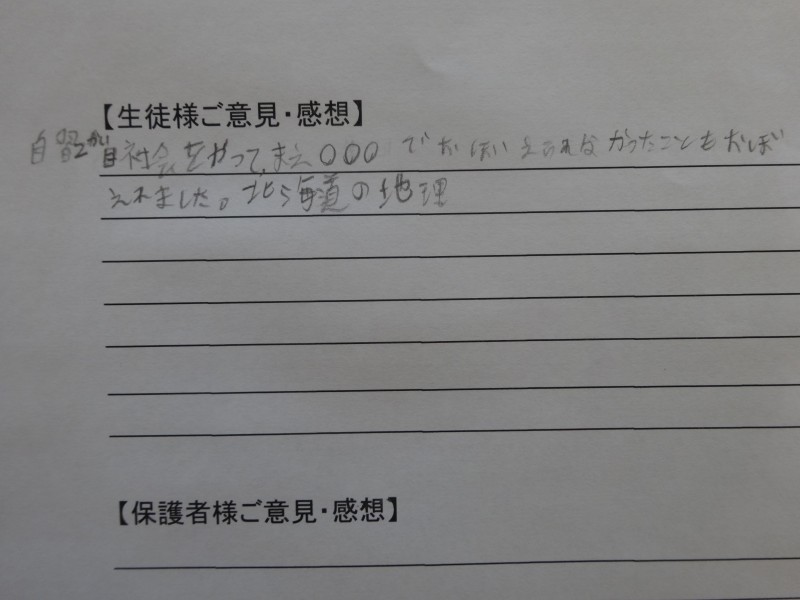 【生徒様ご意見・感想】
自習会 社会をやって、まえ〇〇〇でおぼいえられなかったこともおぼ
えれました。北海道の地理
【保護者様ご意見・感想】